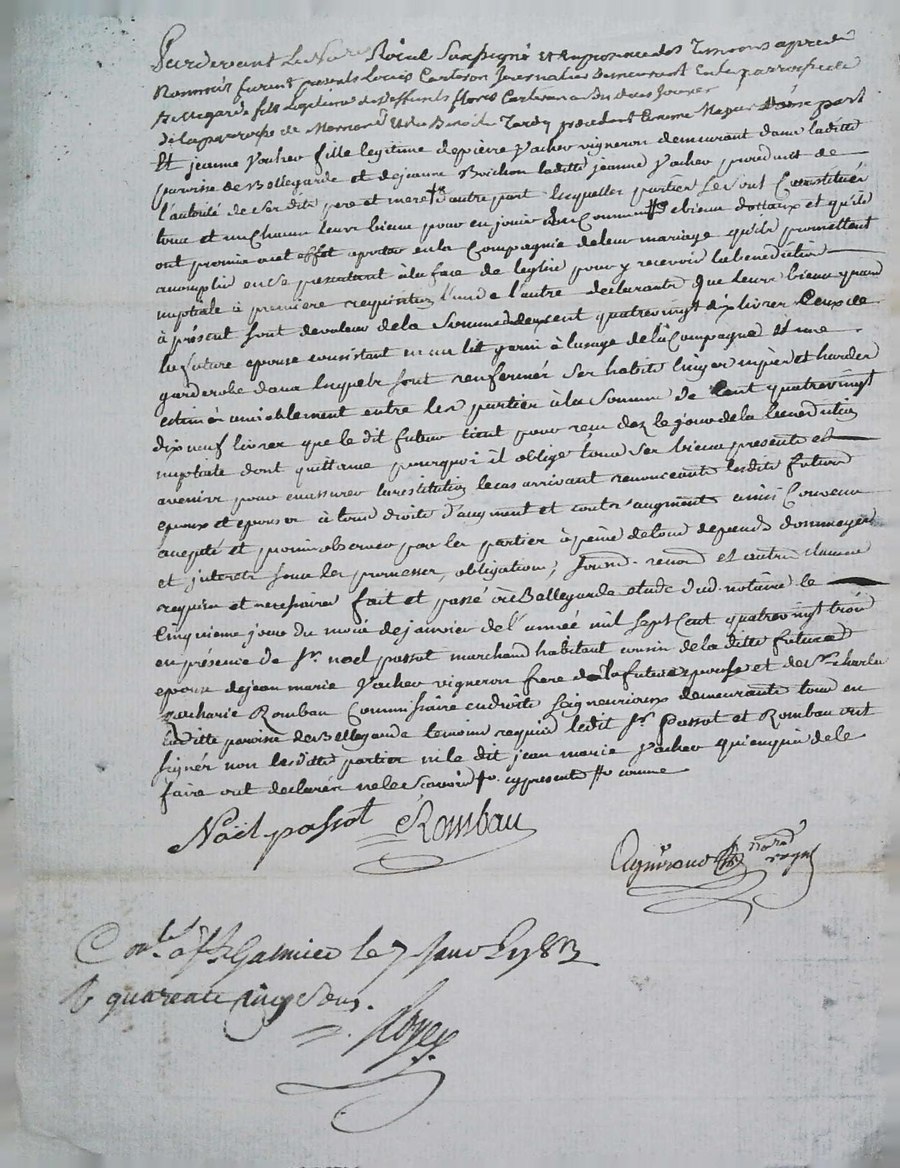 Pardevant Le No.re Roial Soussigné et en presence des Temoins apres
Nommés furent presents Louis Carteron Journalier Demeurant En la parroisse de
Bellegarde fils Legitime de deffunts
de la parroisse de Mornand Benoit Tardy procedant Comme Majeur D'une part
Et jeanne Vacher fille legitime de pierre Vacher vigneron demeurant dans laditte
paroisse de Bellegarde et de jeanne Boichon laditte jeanne Vacher procedant de
l'autorité de ses dits pere et mere d'autre part lesquelles parties se sont Constitués
tous et un Chacun leurs biens pour en jouir Comme biens dottaux et qu'ils
ont promis a cet effet aporter en la Compagnie de leur mariage qu'ils promettent
acomplir en se presentant à la face de leglise pour y recevoir la benediction
nuptiale à premiere requisition l'un de l'autre declarants que leurs biens quand
à présent sont de valeur de la Somme de deux cent quatrevingt dix livres Ceux de
la future epouse consistant en un lit garni à l'usage de la Compagne et une
garderobe dans lesquels sont renfermés ses habits linges nipes et hardes
estimés amiablement entre les parties à la Somme de Cent quatrevingt
dix neuf livres que le dit futur tient pour reçu dez le jour de la benediction
nuptiale dont quittance pourquoi il oblige tous ses biens presents et
avenirs pour en assurer la restitution le cas arrivant renonceants lesdits futurs
epoux et epouse à tous droits d'augment et contr'augment ainsi Convenu
accepté et promis observer par les parties à peine de tous depends dommages
et interets sous les promesses, obligations, soumd. renond et autres clauses
requises et necessaires fait et passé à Bellegarde etude dud. notaire le
Cinquieme jour du mois de janvier de l'année mil sept Cent quatrevingt trois
en présence de Sr. noel passot marchand habitant cousin de la ditte future
epouse de jean marie Vacher vigneron frere de la future epouse et de Sr. charles
zacharie Rombau Commissaire en droits seigneuriaux demeurants tous en
laditte paroisse de Bellegarde temoins requis ledit Sr. Passot et Rombau ont
signés non lesdittes parties ni le dit jean marie Vacher qu'enquis de le
faire ont declarés ne le Scavoir cy presents comme
Noël passot Rombau
not.re royal
Con.le à St Galmier le 7 janv 1783
R quarente cinq sous.
Royer